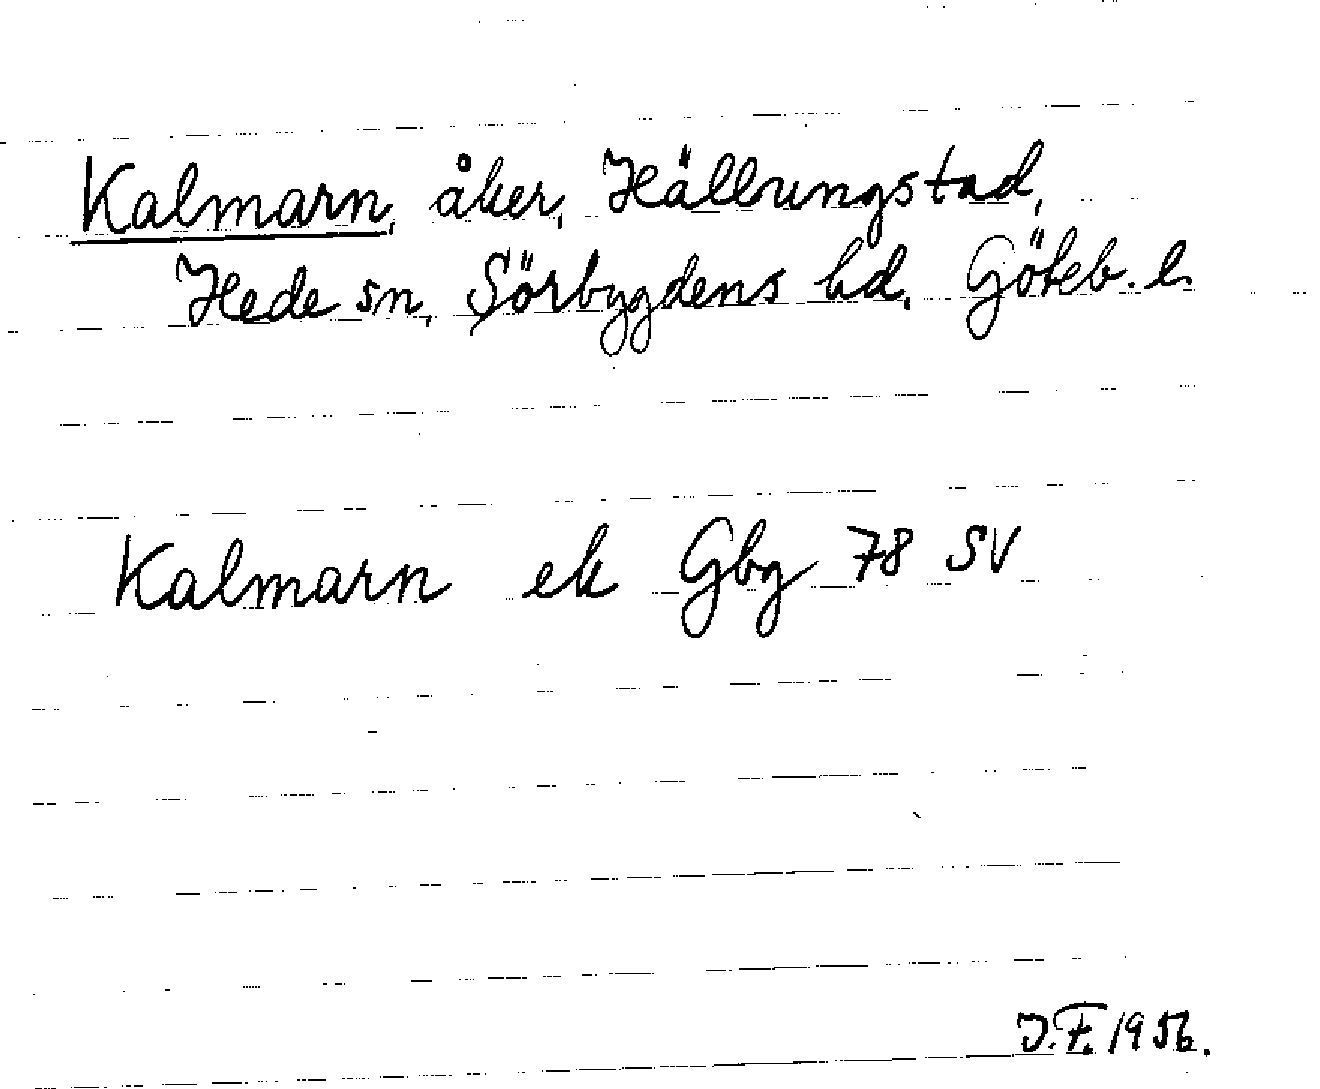 Kalmarn, åker, Hällungstad,
Hede sn, Sörbygdens hd. Göteb. l.
Kalmarn ek Gbg 78 SV
J.F. 1956.